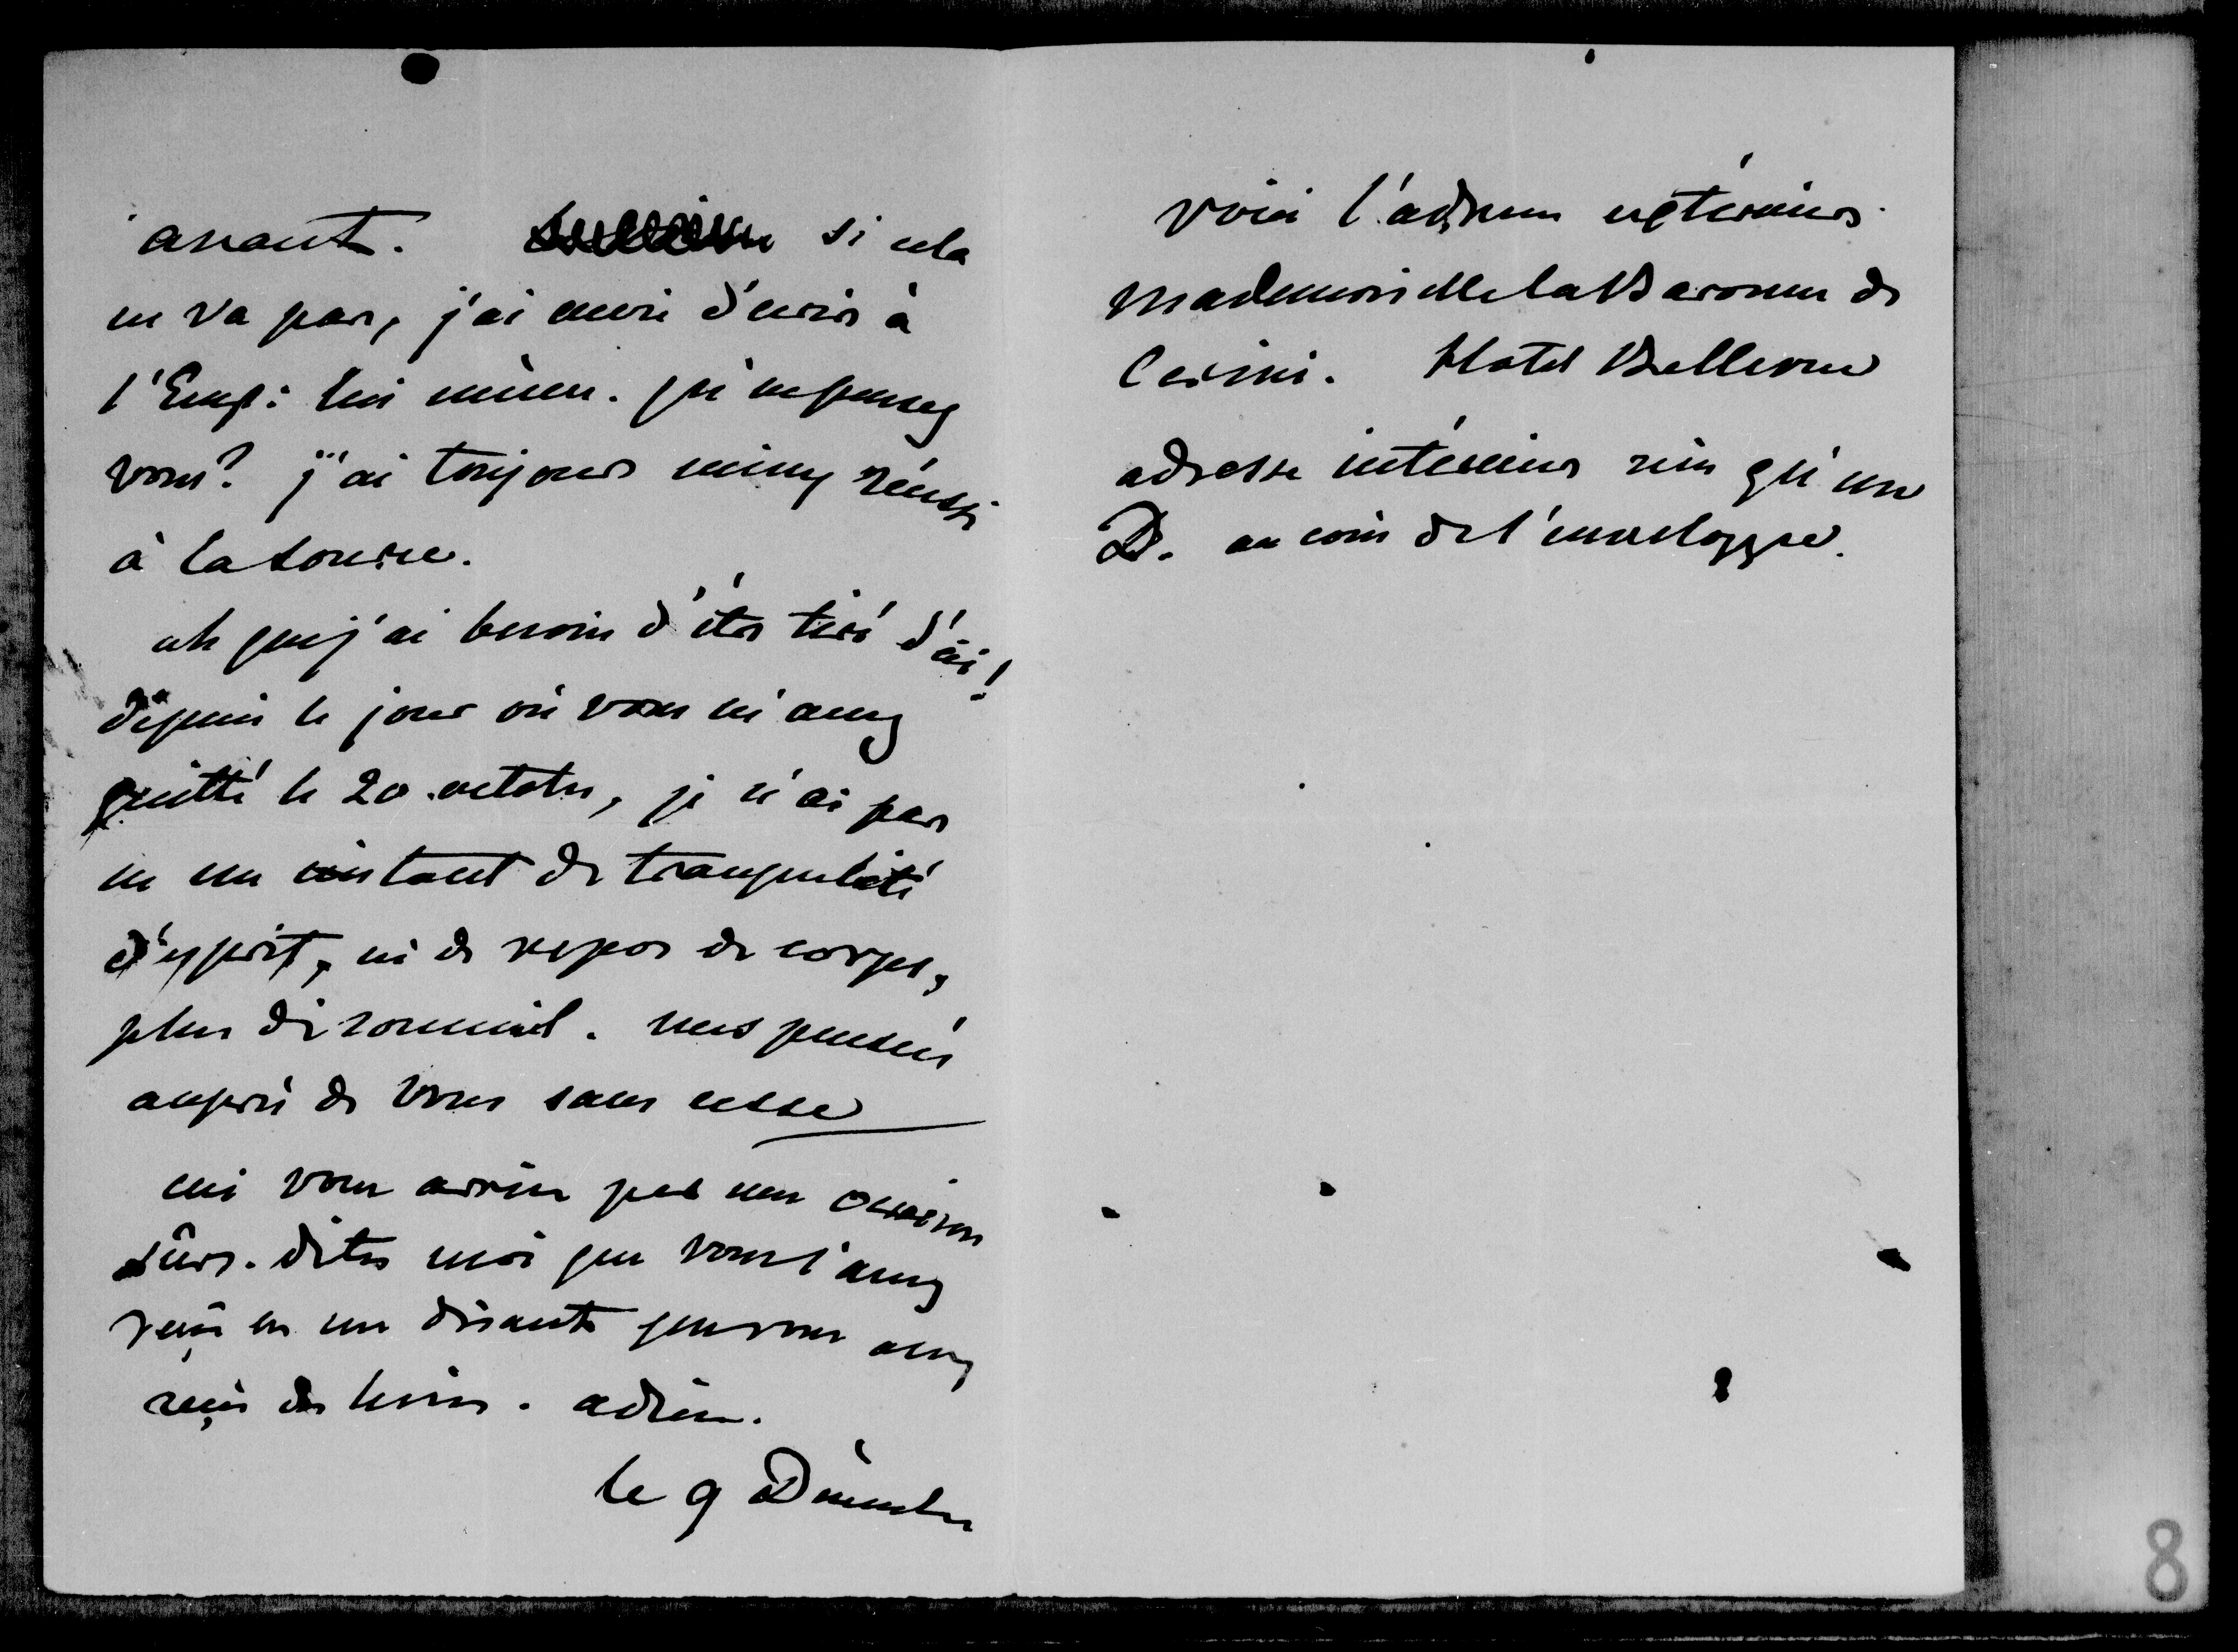 avant. si cela
ne va pas, j'ai envie d'ecrire à
l'Emp: lui même. qu'en pensez
vous? j'ai toujours mieux réussi
à la source.
ah que j'ai besoin d'être tiré d'ici!
dépuis le jour où vous m'avez
quitté le 20 octobre, je n'ai pas
eu un instant de tranquilité
d'esprit, ni de repos de corps,
plus de sommeil. mes pensées
auprès de vous sans cesse
ceci vous arrive par une occasion
sûre. dites moi que vous l'avez
reçu en me disant que vous avez
reçu des livres. adieu.
le 9 Décembre
voici l'adresse extérieure
Mademoiselle la Baronne de
Cerini. Hotel Bellevue
adresse intérieure rien qu'un
D. au coin de l'enveloppe.
8